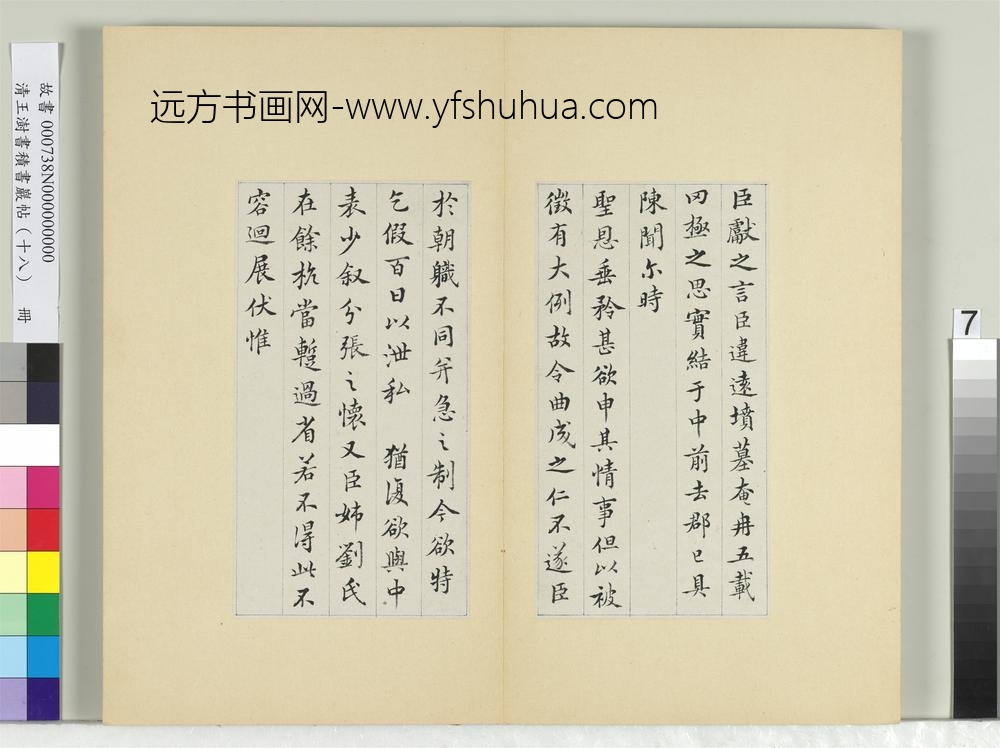 远方书画网-www.yfshuhua.com
臣獻之言臣違遠墳墓奄冉五載
罔極之思實結于中前去郡已具
陳聞尓時
聖恩垂矜甚欲申其情事但以被
徵有大例故令曲成之仁不遂臣
於朝職不同并急之制今欲特
乞假百日以泄私 猶復欲與中
表少叙分張之懷又臣姊劉氏
在餘杭當蹔過省若不得此不
容迴展伏惟
故書 000738N000000000
清王澍書積書巖帖(十八) 冊
7